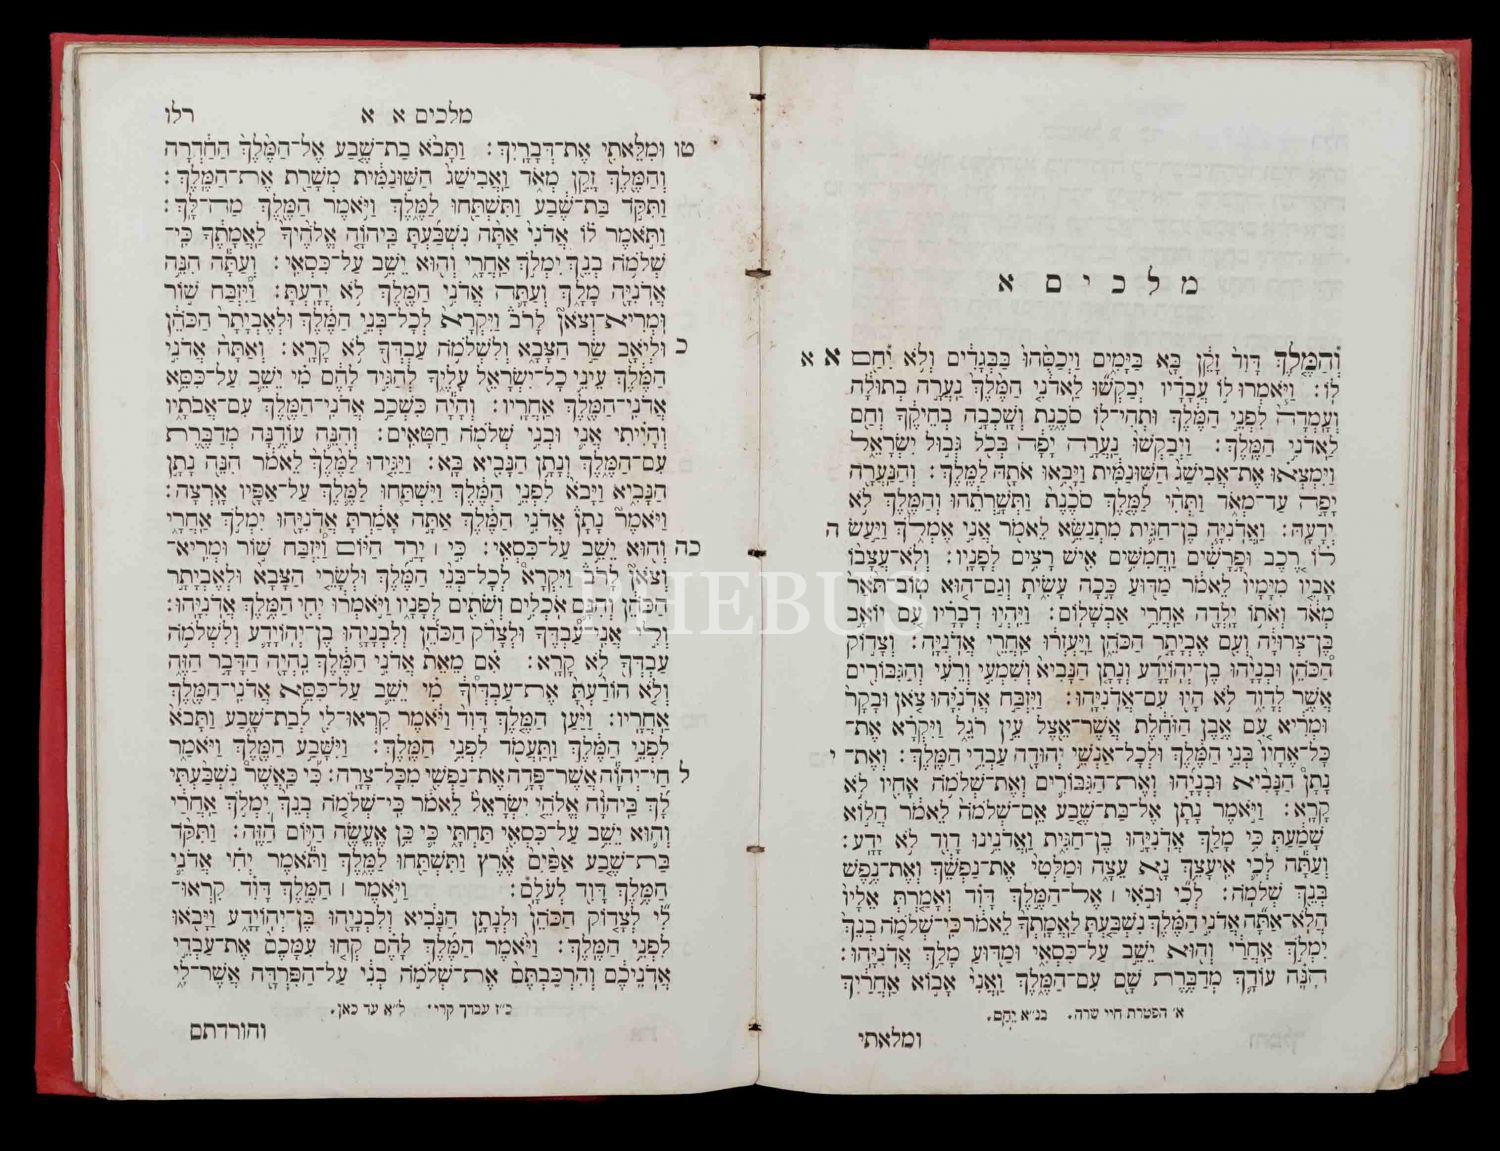 מלכים א
וְהַמֶּ֤לֶךְ דָּוִד֙ זָקֵ֔ן בָּ֖א בַּיָּמִ֑ים וַיְכַסֻּ֙הוּ֙ בַּבְּגָדִ֔ים וְלֹ֥א יִחַ֖ם א א
לֽוֹ׃ וַיֹּ֧אמְרוּ ל֣וֹ עֲבָדָ֗יו יְבַקְשׁ֞וּ לַאדֹנִ֤י הַמֶּ֙לֶךְ֙ נַעֲרָ֣ה בְתוּלָ֔ה
וְעָֽמְדָה֙ לִפְנֵ֣י הַמֶּ֔לֶךְ וּתְהִי־ל֖וֹ סֹכֶ֑נֶת וְשָׁכְבָ֣ה בְחֵיקֶ֔ךָ וְחַ֖ם
לַאדֹנִ֥י הַמֶּֽלֶךְ׃ וַיְבַקְשׁוּ֙ נַעֲרָ֣ה יָפָ֔ה בְּכֹ֖ל גְּב֣וּל יִשְׂרָאֵ֑ל
וַֽיִּמְצְא֗וּ אֶת־אֲבִישַׁג֙ הַשּׁ֣וּנַמִּ֔ית וַיָּבִ֥אוּ אֹתָ֖הּ לַמֶּֽלֶךְ׃ וְהַֽנַּעֲרָ֖ה
יָפָ֣ה עַד־מְאֹ֑ד וַתְּהִ֨י לַמֶּ֤לֶךְ סֹכֶ֙נֶת֙ וַתְּשָׁ֣רְתֵ֔הוּ וְהַמֶּ֖לֶךְ לֹ֥א
יְדָעָֽהּ׃ וַאֲדֹנִיָּ֧ה בֶן־חַגִּ֛ית מִתְנַשֵּׂ֥א לֵאמֹ֖ר אֲנִ֣י אֶמְלֹ֑ךְ וַיַּ֣עַשׂ ה
ל֗וֹ רֶ֚כֶב וּפָ֣רָשִׁ֔ים וַחֲמִשִּׁ֥ים אִ֖ישׁ רָצִ֥ים לְפָנָֽיו׃ וְלֹֽא־עֲצָב֨וֹ
אָבִ֤יו מִיָּמָיו֙ לֵאמֹ֔ר מַדּ֖וּעַ כָּ֣כָה עָשִׂ֑יתָ וְגַם־ה֤וּא טֽוֹב־תֹּ֙אַר֙
מְאֹ֔ד וְאֹת֥וֹ יָלְדָ֖ה אַחֲרֵ֥י אַבְשָׁלֽוֹם׃ וַיִּהְי֣וּ דְבָרָ֔יו עִ֚ם יוֹאָ֣ב
בֶּן־צְרוּיָ֔ה וְעִ֖ם אֶבְיָתָ֣ר הַכֹּהֵ֑ן וַֽיַּעְזְר֔וּ אַחֲרֵ֖י אֲדֹנִיָּֽה׃ וְצָד֣וֹק
הַ֠כֹּהֵן וּבְנָיָ֨הוּ בֶן־יְהוֹיָדָ֜ע וְנָתָ֤ן הַנָּבִיא֙ וְשִׁמְעִ֣י וְרֵעִ֔י וְהַגִּבּוֹרִ֖ים
אֲשֶׁ֣ר לְדָוִ֑ד לֹ֥א הָי֖וּ עִם־אֲדֹנִיָּֽהוּ׃ וַיִּזְבַּ֣ח אֲדֹנִיָּ֗הוּ צֹ֤אן וּבָקָר֙
וּמְרִ֔יא עִ֚ם אֶ֣בֶן הַזֹּחֶ֔לֶת אֲשֶׁר־אֵ֖צֶל עֵ֣ין רֹגֵ֑ל וַיִּקְרָ֗א אֶת־
כָּל־אֶחָיו֙ בְּנֵ֣י הַמֶּ֔לֶךְ וּלְכָל־אַנְשֵׁ֥י יְהוּדָ֖ה עַבְדֵ֥י הַמֶּֽלֶךְ׃ וְֽאֶת־ י
נָתָן֩ הַנָּבִ֨יא וּבְנָיָ֜הוּ וְאֶת־הַגִּבּוֹרִ֛ים וְאֶת־שְׁלֹמֹ֥ה אָחִ֖יו לֹ֥א
קָרָֽא׃ וַיֹּ֣אמֶר נָתָ֗ן אֶל־בַּת־שֶׁ֤בַע אֵם־שְׁלֹמֹה֙ לֵאמֹ֔ר הֲל֣וֹא
שָׁמַ֔עַתְּ כִּ֥י מָלַ֖ךְ אֲדֹנִיָּ֣הוּ בֶן־חַגִּ֑ית וַאֲדֹנֵ֥ינוּ דָוִ֖ד לֹ֥א יָדָֽע׃
וְעַתָּ֕ה לְכִ֛י אִיעָצֵ֥ךְ נָ֖א עֵצָ֑ה וּמַלְּטִי֙ אֶת־נַפְשֵׁ֔ךְ וְאֶת־נֶ֥פֶשׁ
בְּנֵ֖ךְ שְׁלֹמֹֽה׃ לְכִ֞י וּבֹ֣אִי ׀ אֶל־הַמֶּ֣לֶךְ דָּוִ֗ד וְאָמַ֤רְתְּ אֵלָיו֙
הֲלֹֽא־אַתָּ֞ה אֲדֹנִ֣י הַמֶּ֗לֶךְ נִשְׁבַּ֤עְתָּ לַאֲמָֽתְךָ֙ לֵאמֹ֔ר כִּֽי־שְׁלֹמֹ֤ה בְנֵךְ֙
יִמְלֹ֣ךְ אַחֲרַ֔י וְה֖וּא יֵשֵׁ֣ב עַל־כִּסְאִ֑י וּמַדּ֖וּעַ מָלַ֥ךְ אֲדֹנִיָּֽהוּ׃
הִנֵּ֗ה עוֹדָ֛ךְ מְדַבֶּ֥רֶת שָׁ֖ם עִם־הַמֶּ֑לֶךְ וַאֲנִי֙ אָב֣וֹא אַחֲרַ֔יִךְ
א' הפטרת חיי שרה. בנ"א יֵחַם.
ומלאתי
מלכים א א רלו
טו וּמִלֵּאתִ֖י אֶת־דְּבָרָֽיִךְ׃ וַתָּבֹ֨א בַת־שֶׁ֤בַע אֶל־הַמֶּ֙לֶךְ֙ הַחַ֔דְרָה
וְהַמֶּ֖לֶךְ זָקֵ֣ן מְאֹ֑ד וַֽאֲבִישַׁג֙ הַשּׁ֣וּנַמִּ֔ית מְשָׁרַ֖ת אֶת־הַמֶּֽלֶךְ׃
וַתִּקֹּ֣ד בַּת־שֶׁ֔בַע וַתִּשְׁתַּ֖חוּ לַמֶּ֑לֶךְ וַיֹּ֥אמֶר הַמֶּ֖לֶךְ מַה־לָּֽךְ׃
וַתֹּ֣אמֶר ל֗וֹ אֲדֹנִי֙ אַתָּ֨ה נִשְׁבַּ֜עְתָּ בַּֽיהוָ֤ה אֱלֹהֶ֙יךָ֙ לַֽאֲמָתֶ֔ךָ כִּֽי־
שְׁלֹמֹ֥ה בְנֵ֖ךְ יִמְלֹ֣ךְ אַחֲרָ֑י וְה֖וּא יֵשֵׁ֥ב עַל־כִּסְאִֽי׃ וְעַתָּ֕ה הִנֵּ֥ה
אֲדֹנִיָּ֖ה מָלָ֑ךְ וְעַתָּ֛ה אֲדֹנִ֥י הַמֶּ֖לֶךְ לֹ֥א יָדָֽעְתָּ׃ וַ֠יִּזְבַּח שׁ֥וֹר
וּֽמְרִיא־וְצֹאן֮ לָרֹב֒ וַיִּקְרָא֙ לְכָל־בְּנֵ֣י הַמֶּ֔לֶךְ וּלְאֶבְיָתָר֙ הַכֹּהֵ֔ן
כ וּלְיֹאָ֖ב שַׂ֣ר הַצָּבָ֑א וְלִשְׁלֹמֹ֥ה עַבְדְּךָ֖ לֹ֥א קָרָֽא׃ וְאַתָּה֙ אֲדֹנִ֣י
הַמֶּ֔לֶךְ עֵינֵ֥י כָל־יִשְׂרָאֵ֖ל עָלֶ֑יךָ לְהַגִּ֣יד לָהֶ֔ם מִ֗י יֵשֵׁ֛ב עַל־כִּסֵּ֥א
אֲדֹנִֽי־הַמֶּ֖לֶךְ אַחֲרָֽיו׃ וְהָיָ֕ה כִּשְׁכַ֥ב אֲדֹנִֽי־הַמֶּ֖לֶךְ עִם־אֲבֹתָ֑יו
וְהָיִ֗יתִי אֲנִ֛י וּבְנִ֥י שְׁלֹמֹ֖ה חַטָּאִֽים׃ וְהִנֵּ֛ה עוֹדֶ֥נָּה מְדַבֶּ֖רֶת
עִם־הַמֶּ֑לֶךְ וְנָתָ֥ן הַנָּבִ֖יא בָּֽא׃ וַיַּגִּ֤ידוּ לַמֶּ֙לֶךְ֙ לֵאמֹ֔ר הִנֵּ֖ה נָתָ֣ן
הַנָּבִ֑יא וַיָּבֹא֙ לִפְנֵ֣י הַמֶּ֔לֶךְ וַיִּשְׁתַּ֧חוּ לַמֶּ֛לֶךְ עַל־אַפָּ֖יו אָֽרְצָה׃
וַיֹּאמֶר֮ נָתָן֒ אֲדֹנִ֣י הַמֶּ֔לֶךְ אַתָּ֣ה אָמַ֔רְתָּ אֲדֹנִיָּ֖הוּ יִמְלֹ֣ךְ אַחֲרָ֑י
כה וְה֖וּא יֵשֵׁ֥ב עַל־כִּסְאִֽי׃ כִּ֣י ׀ יָרַ֣ד הַיּ֗וֹם וַ֠יִּזְבַּח שׁ֥וֹר וּֽמְרִיא־
וְצֹאן֮ לָרֹב֒ וַיִּקְרָא֩ לְכָל־בְּנֵ֨י הַמֶּ֜לֶךְ וּלְשָׂרֵ֤י הַצָּבָא֙ וּלְאֶבְיָתָ֣ר
הַכֹּהֵ֔ן וְהִנָּ֛ם אֹכְלִ֥ים וְשֹׁתִ֖ים לְפָנָ֑יו וַיֹּ֣אמְר֔וּ יְחִ֖י הַמֶּ֥לֶךְ אֲדֹנִיָּֽהוּ׃
וְלִ֣י אֲנִֽי־עַ֠בְדֶּךָ וּלְצָדֹ֨ק הַכֹּהֵ֜ן וְלִבְנָיָ֧הוּ בֶן־יְהוֹיָדָ֛ע וְלִשְׁלֹמֹ֥ה
עַבְדְּךָ֖ לֹ֥א קָרָֽא׃ אִ֗ם מֵאֵת֙ אֲדֹנִ֣י הַמֶּ֔לֶךְ נִֽהְיָ֖ה הַדָּבָ֣ר הַזֶּ֑ה
וְלֹ֤א הוֹדַ֙עְתָּ֙ אֶֽת־עַבְדְּךָ֔ מִ֗י יֵשֵׁ֛ב עַל־כִּסֵּ֥א אֲדֹנִֽי־הַמֶּ֖לֶךְ
אַחֲרָֽיו׃ וַיַּ֨עַן הַמֶּ֤לֶךְ דָּוִד֙ וַיֹּ֔אמֶר קִרְאוּ־לִ֖י לְבַת־שָׁ֑בַע וַתָּבֹא֙
לִפְנֵ֣י הַמֶּ֔לֶךְ וַֽתַּעֲמֹ֖ד לִפְנֵ֥י הַמֶּֽלֶךְ׃ וַיִּשָּׁבַ֥ע הַמֶּ֖לֶךְ וַיֹּאמַ֑ר
ל חַי־יְהוָ֕ה אֲשֶׁר־פָּדָ֥ה אֶת־נַפְשִׁ֖י מִכָּל־צָרָֽה׃ כִּ֡י כַּאֲשֶׁר֩ נִשְׁבַּ֨עְתִּי
לָ֜ךְ בַּיהוָ֨ה אֱלֹהֵ֤י יִשְׂרָאֵל֙ לֵאמֹ֔ר כִּֽי־שְׁלֹמֹ֤ה בְנֵךְ֙ יִמְלֹ֣ךְ אַחֲרַ֔י
וְה֛וּא יֵשֵׁ֥ב עַל־כִּסְאִ֖י תַּחְתָּ֑י כִּ֛י כֵּ֥ן אֶעֱשֶׂ֖ה הַיּ֥וֹם הַזֶּֽה׃ וַתִּקֹּ֨ד
בַּת־שֶׁ֤בַע אַפַּ֙יִם֙ אֶ֔רֶץ וַתִּשְׁתַּ֖חוּ לַמֶּ֑לֶךְ וַתֹּ֕אמֶר יְחִ֗י אֲדֹנִ֛י
הַמֶּ֥לֶךְ דָּוִ֖ד לְעֹלָֽם׃ וַיֹּ֣אמֶר ׀ הַמֶּ֣לֶךְ דָּוִ֗ד קִרְאוּ־
לִ֞י לְצָד֤וֹק הַכֹּהֵן֙ וּלְנָתָ֣ן הַנָּבִ֔יא וְלִבְנָיָ֖הוּ בֶּן־יְהוֹיָדָ֑ע וַיָּבֹ֖אוּ
לִפְנֵ֥י הַמֶּֽלֶךְ׃ וַיֹּ֨אמֶר הַמֶּ֜לֶךְ לָהֶ֗ם קְח֤וּ עִמָּכֶם֙ אֶת־עַבְדֵ֣י
אֲדֹנֵיכֶ֔ם וְהִרְכַּבְתֶּם֙ אֶת־שְׁלֹמֹ֣ה בְנִ֔י עַל־הַפִּרְדָּ֖ה אֲשֶׁר־לִ֑י
כ"ז עבדך קרי. ל"א עד כאן.
והורדתם
PHEBUS